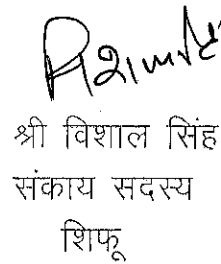 श्री विशाल सिंह
संकाय सदस्य
शिफू